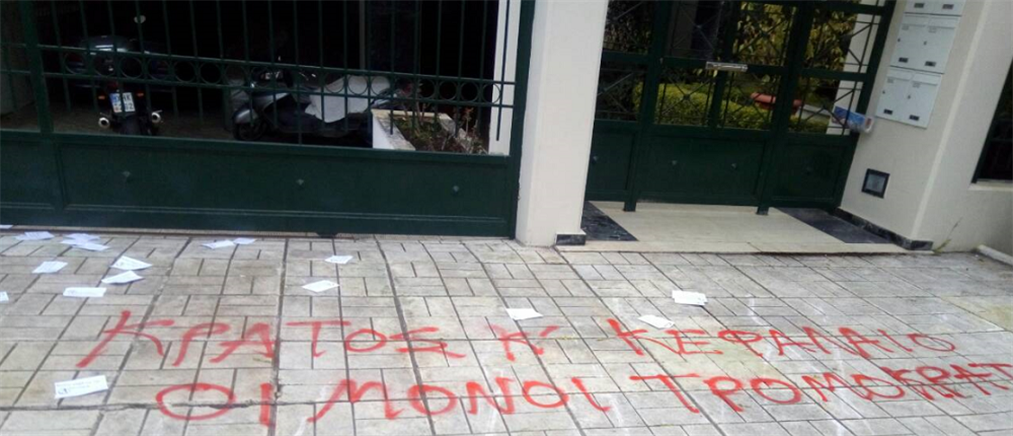 ΚΡΑΤΟΣ Κ' ΚΕΦΑΛΑΙΟ
ΟΙ ΜΟΝΟΙ ΤΡΟΜΟΚΡΑΤ